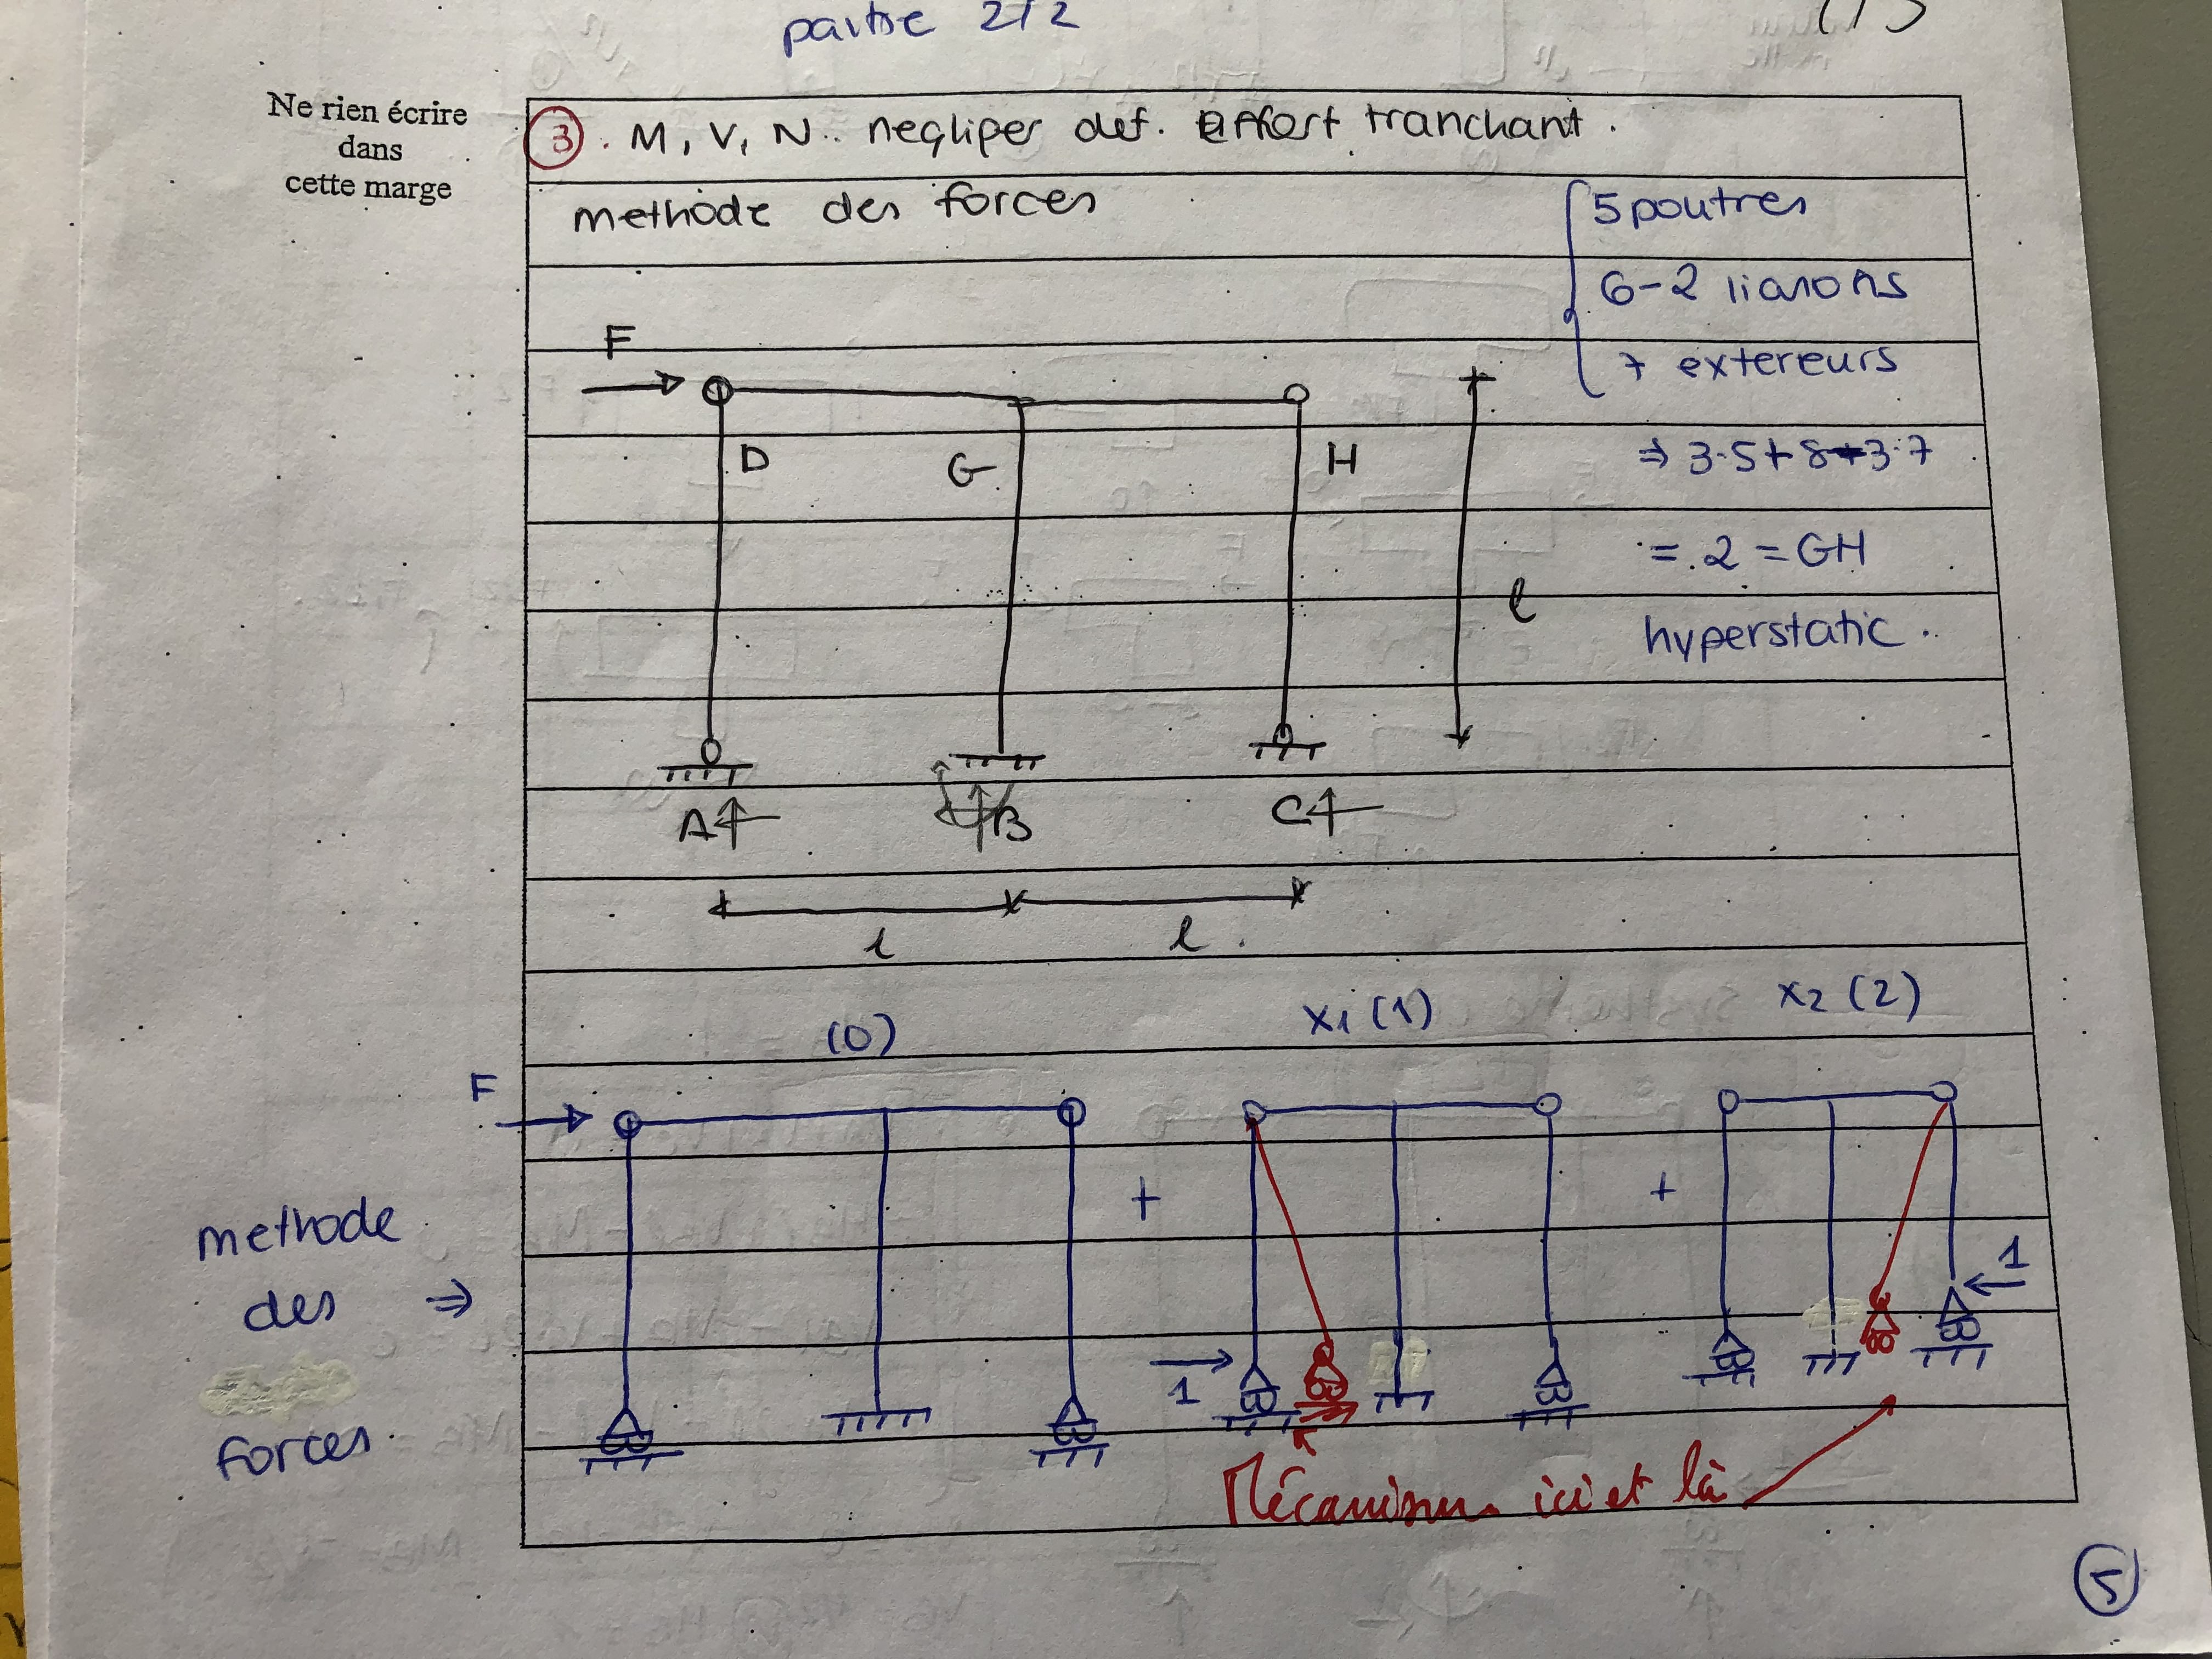 partie 2/2
Ne rien écrire
dans
cette marge
③. M, V, N. negliper def. Effort tranchant.
methode des forces
5 poutres
6-2 liaisons
7 exterreurs
⇒ 3·5+8-3·7
= 2 = GH
hyperstatic.
F
D
G
H
l
A
B
C
l
l
(0)
x₁(1)
x₂(2)
methode
des ⇒
forces
F
+
+
1
1
Mécanismes ici et là
⑤